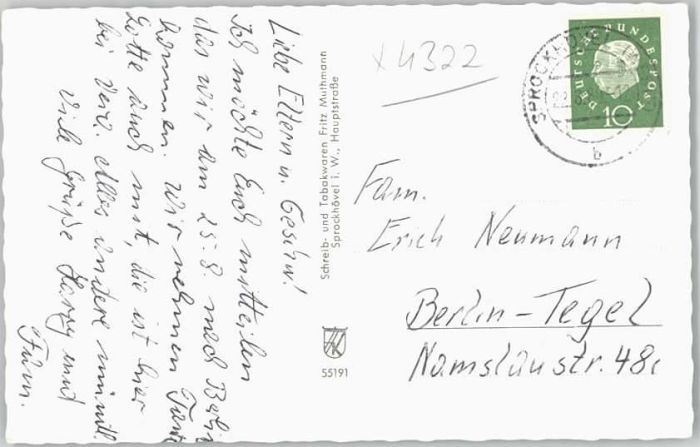 Liebe Eltern u. Geschw!
Ich möchte Euch mitteilen
das wir am 25.8. nach Berlin
kommen. Wir nehmen Tante
Lotte auch mit, die ist hier
bei Verw. Alles andere mündl.
Viele Grüße Harry und
Fam.
Schreib- und Tabakwaren Fritz Muthmann
Sprockhövel i. W., Hauptstraße
55191
x 4322
DEUTSCHE BUNDESPOST
10
SPROCKHÖVEL
b
Fam.
Erich Neumann
Berlin-Tegel
Namslaustr. 48c